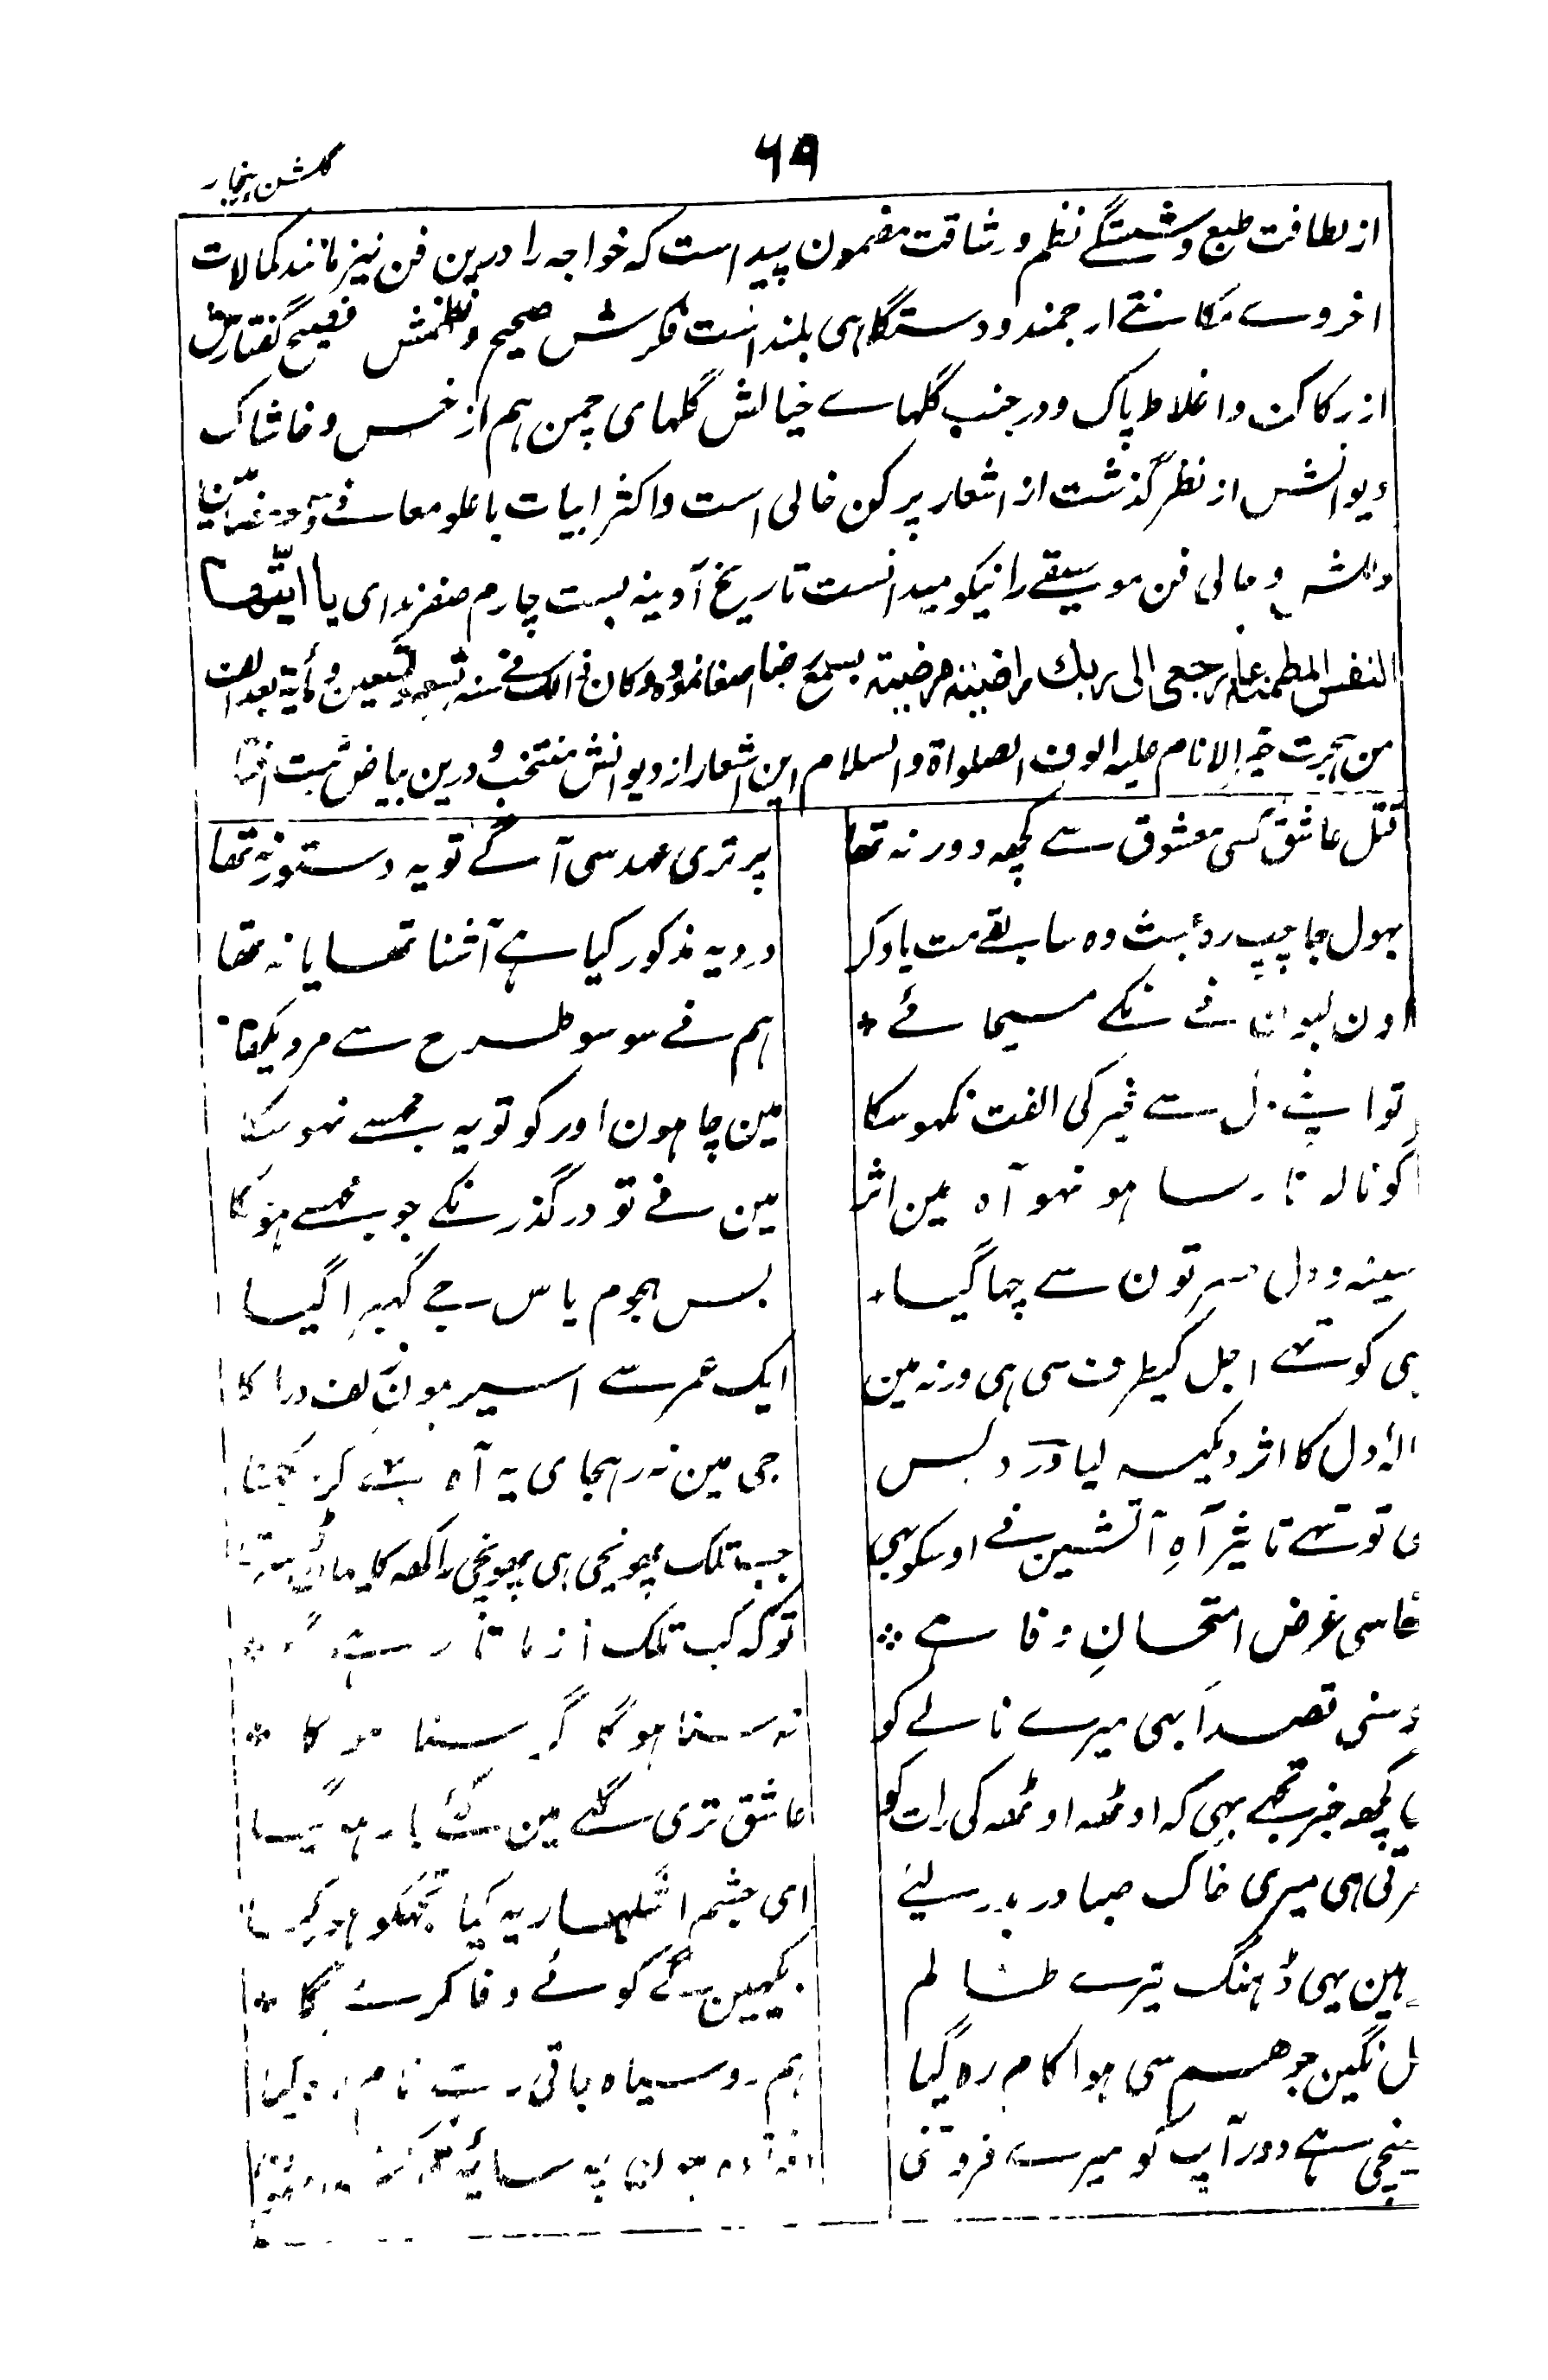 ۶۹
گلشن بیخار
از لطافت طبع و شستگے نظم و رشاقت مضمون پیداست که خواجه را درین فن نیز مانند کمالات
اخروے مکانتے ارجمند و دستگاهی بلند است فکرش صحیح و نظمش فصیح گفتارش
از رکاکت و اغلاط پاک و در جنب گلهاے خیالش گلهای چمن هم از خس و خاشاک
دیوانش از نظر گذشت از اشعار پرکن خالی است و اکثر ابیات با علو معانے
و مالی فن موسیقے را نیکو میدانست تاریخ آدینه بست چارم صفر ندای یا ایتها
النفس المطمئنة ارجعی الی ربك راضیة مرضیة بسمع رضا اصغا نموده و کان ذالک فی سنه تسعه و تسعین و مأیة بعد الف
من هجرت خیر الانام علیه الوف الصلواة والسلام این اشعار از دیوانش منتخب و درین بیاض ثبت افتاد
قتل عاشق کسی معشوق سے کچھ دور نہ تھا
پر تری عہد سی آگے تو یہ دستور نہ تھا
بہول جا چپ رہ عبث وہ سابقے مت یاد کر
درد یہ مذکور کیا ہے آشنا تھا یا نہ تھا
اون لبون نے نکے مسیحائے *
ہم نے سو سو طرح سے مر دیکھا
تو اپنے دل سے غیر کی الفت نکہو سکا
مین چاہون اور کو تو یہ مجسے نہو سکا
گو نالہ نارسا ہو نہو آہ مین اثر
مین نے تو درگذر نکے جو مجسے ہو سکا
سینہ و دل حسرتون سے چھا گیا
بس ہجوم یاس جے گہبرا گیا
ہی کوتہے اجل کیطرف سی ہی ورنہ مین
ایک عمر سے اسیر ہون زلف دراز کا
نالۂ دل کا اثر دیکہہ لیا درد بس
جی مین نہ رہجای یہ آہ بہے کر دیکہنا
ی تو تہے تاثیر آہِ آتشین نے اوسکو بہی
جب تلک پہونچی ہی پہونچی راکھ کا یہان
غاسی غرض امتحانِ وفا ہے *
تو کہ کب تلک آزماتا رہے گا *
و سنی قصداً بہی میرے نالے کو
نہ سنا ہوگا گر سنا ہوگا *
یا کچھ خبر تجھے بہی کہ اوٹھ اوٹھ کی رات کو
عاشق تری گلے مین کئے بار ہو گیا
رتی ہی میری خاک صبا در بدر لئے
ای چشم اشکبار یہ کیا تجھکو ہو گیا
ہین یہی ڈہنگ تیرے ظالم
دیکہین گے کوئے وفا کرے گا *
ل نگین جو ہم سی ہوا کام رہ گیا
ہم رو سیاہ جاتی رہے نام رہ گیا
ینچی ہے دور آپ کو میرے فروتنی
افتادہ ہون پہ سایۂ